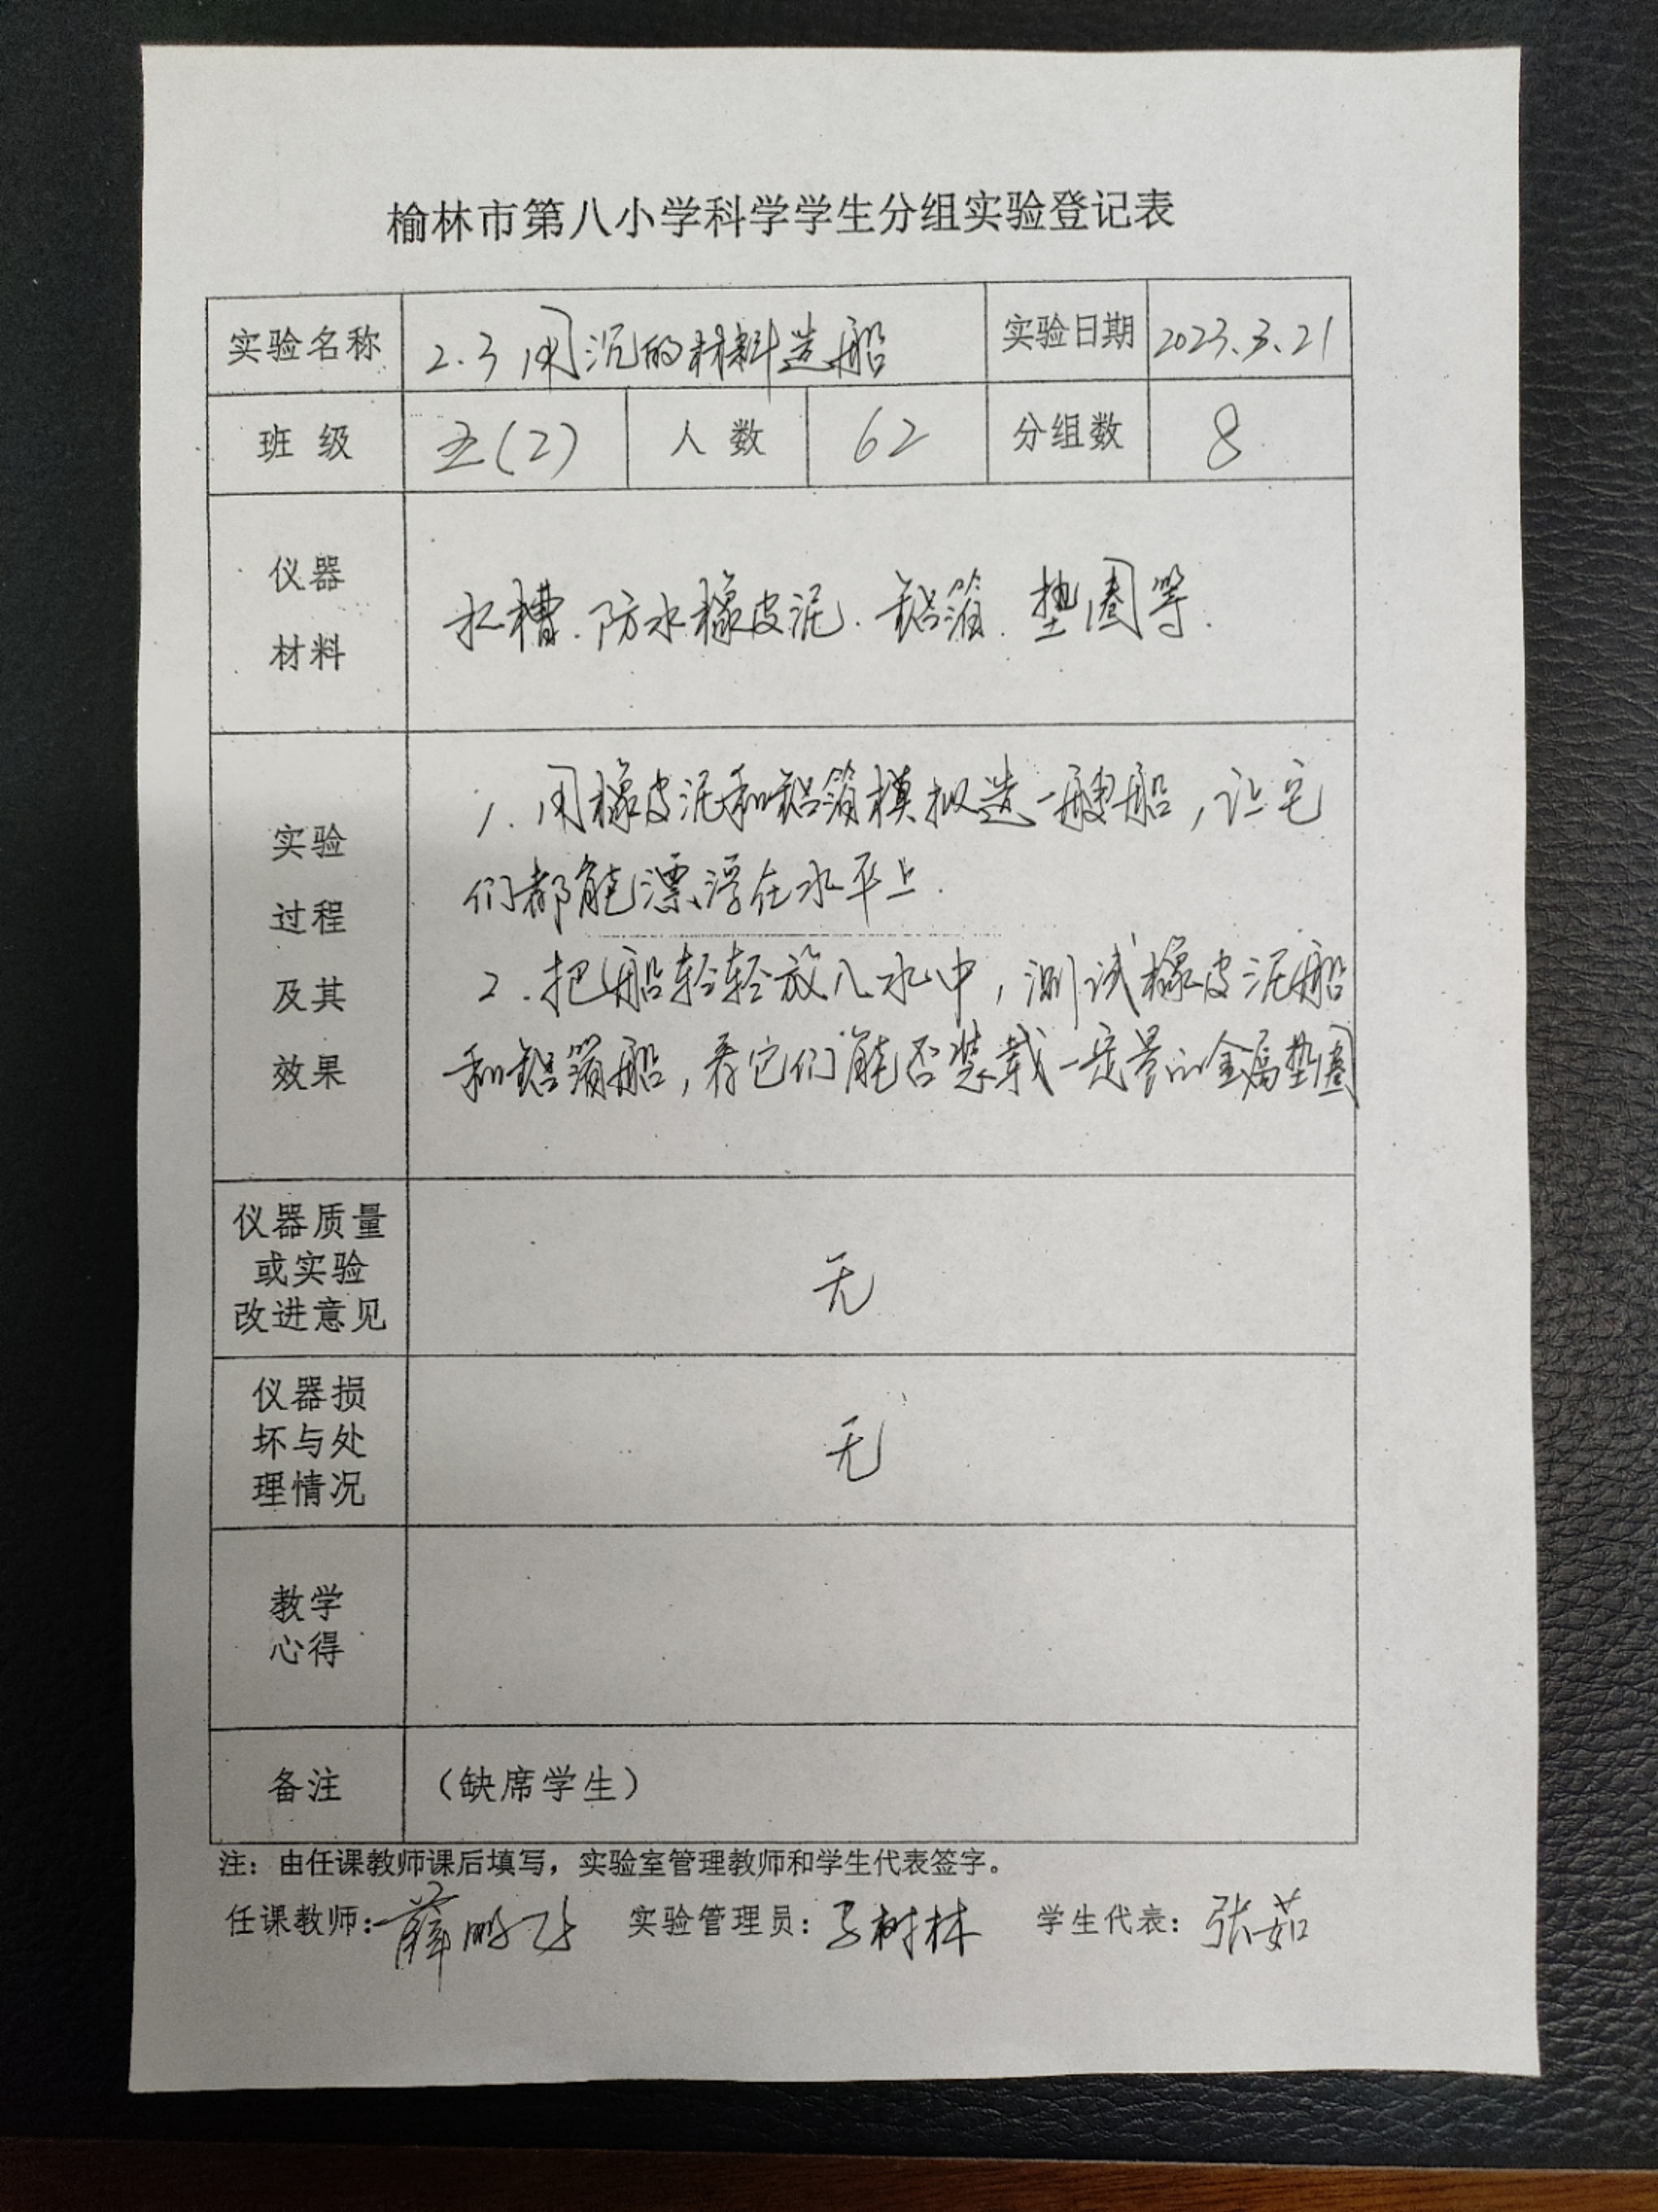 榆林市第八小学科学学生分组实验登记表
实验名称 2.3用沉的材料造船 实验日期 2023.3.21
班 级 五(2) 人 数 62 分组数 8
仪器
材料
水槽.防水橡皮泥.铝箔.垫圈等.
实验
过程
及其
效果
1.用橡皮泥和铝箔模拟造一艘船,让它
们都能漂浮在水平上.
2.把船轻轻放入水中,测试橡皮泥船
和铝箔船,看它们能否装载一定量的金属垫圈
仪器质量
或实验
改进意见
无
仪器损
坏与处
理情况
无
教学
心得
备注 (缺席学生)
注:由任课教师课后填写,实验室管理教师和学生代表签字。
任课教师:薛鹏 实验管理员:树林 学生代表:张茹